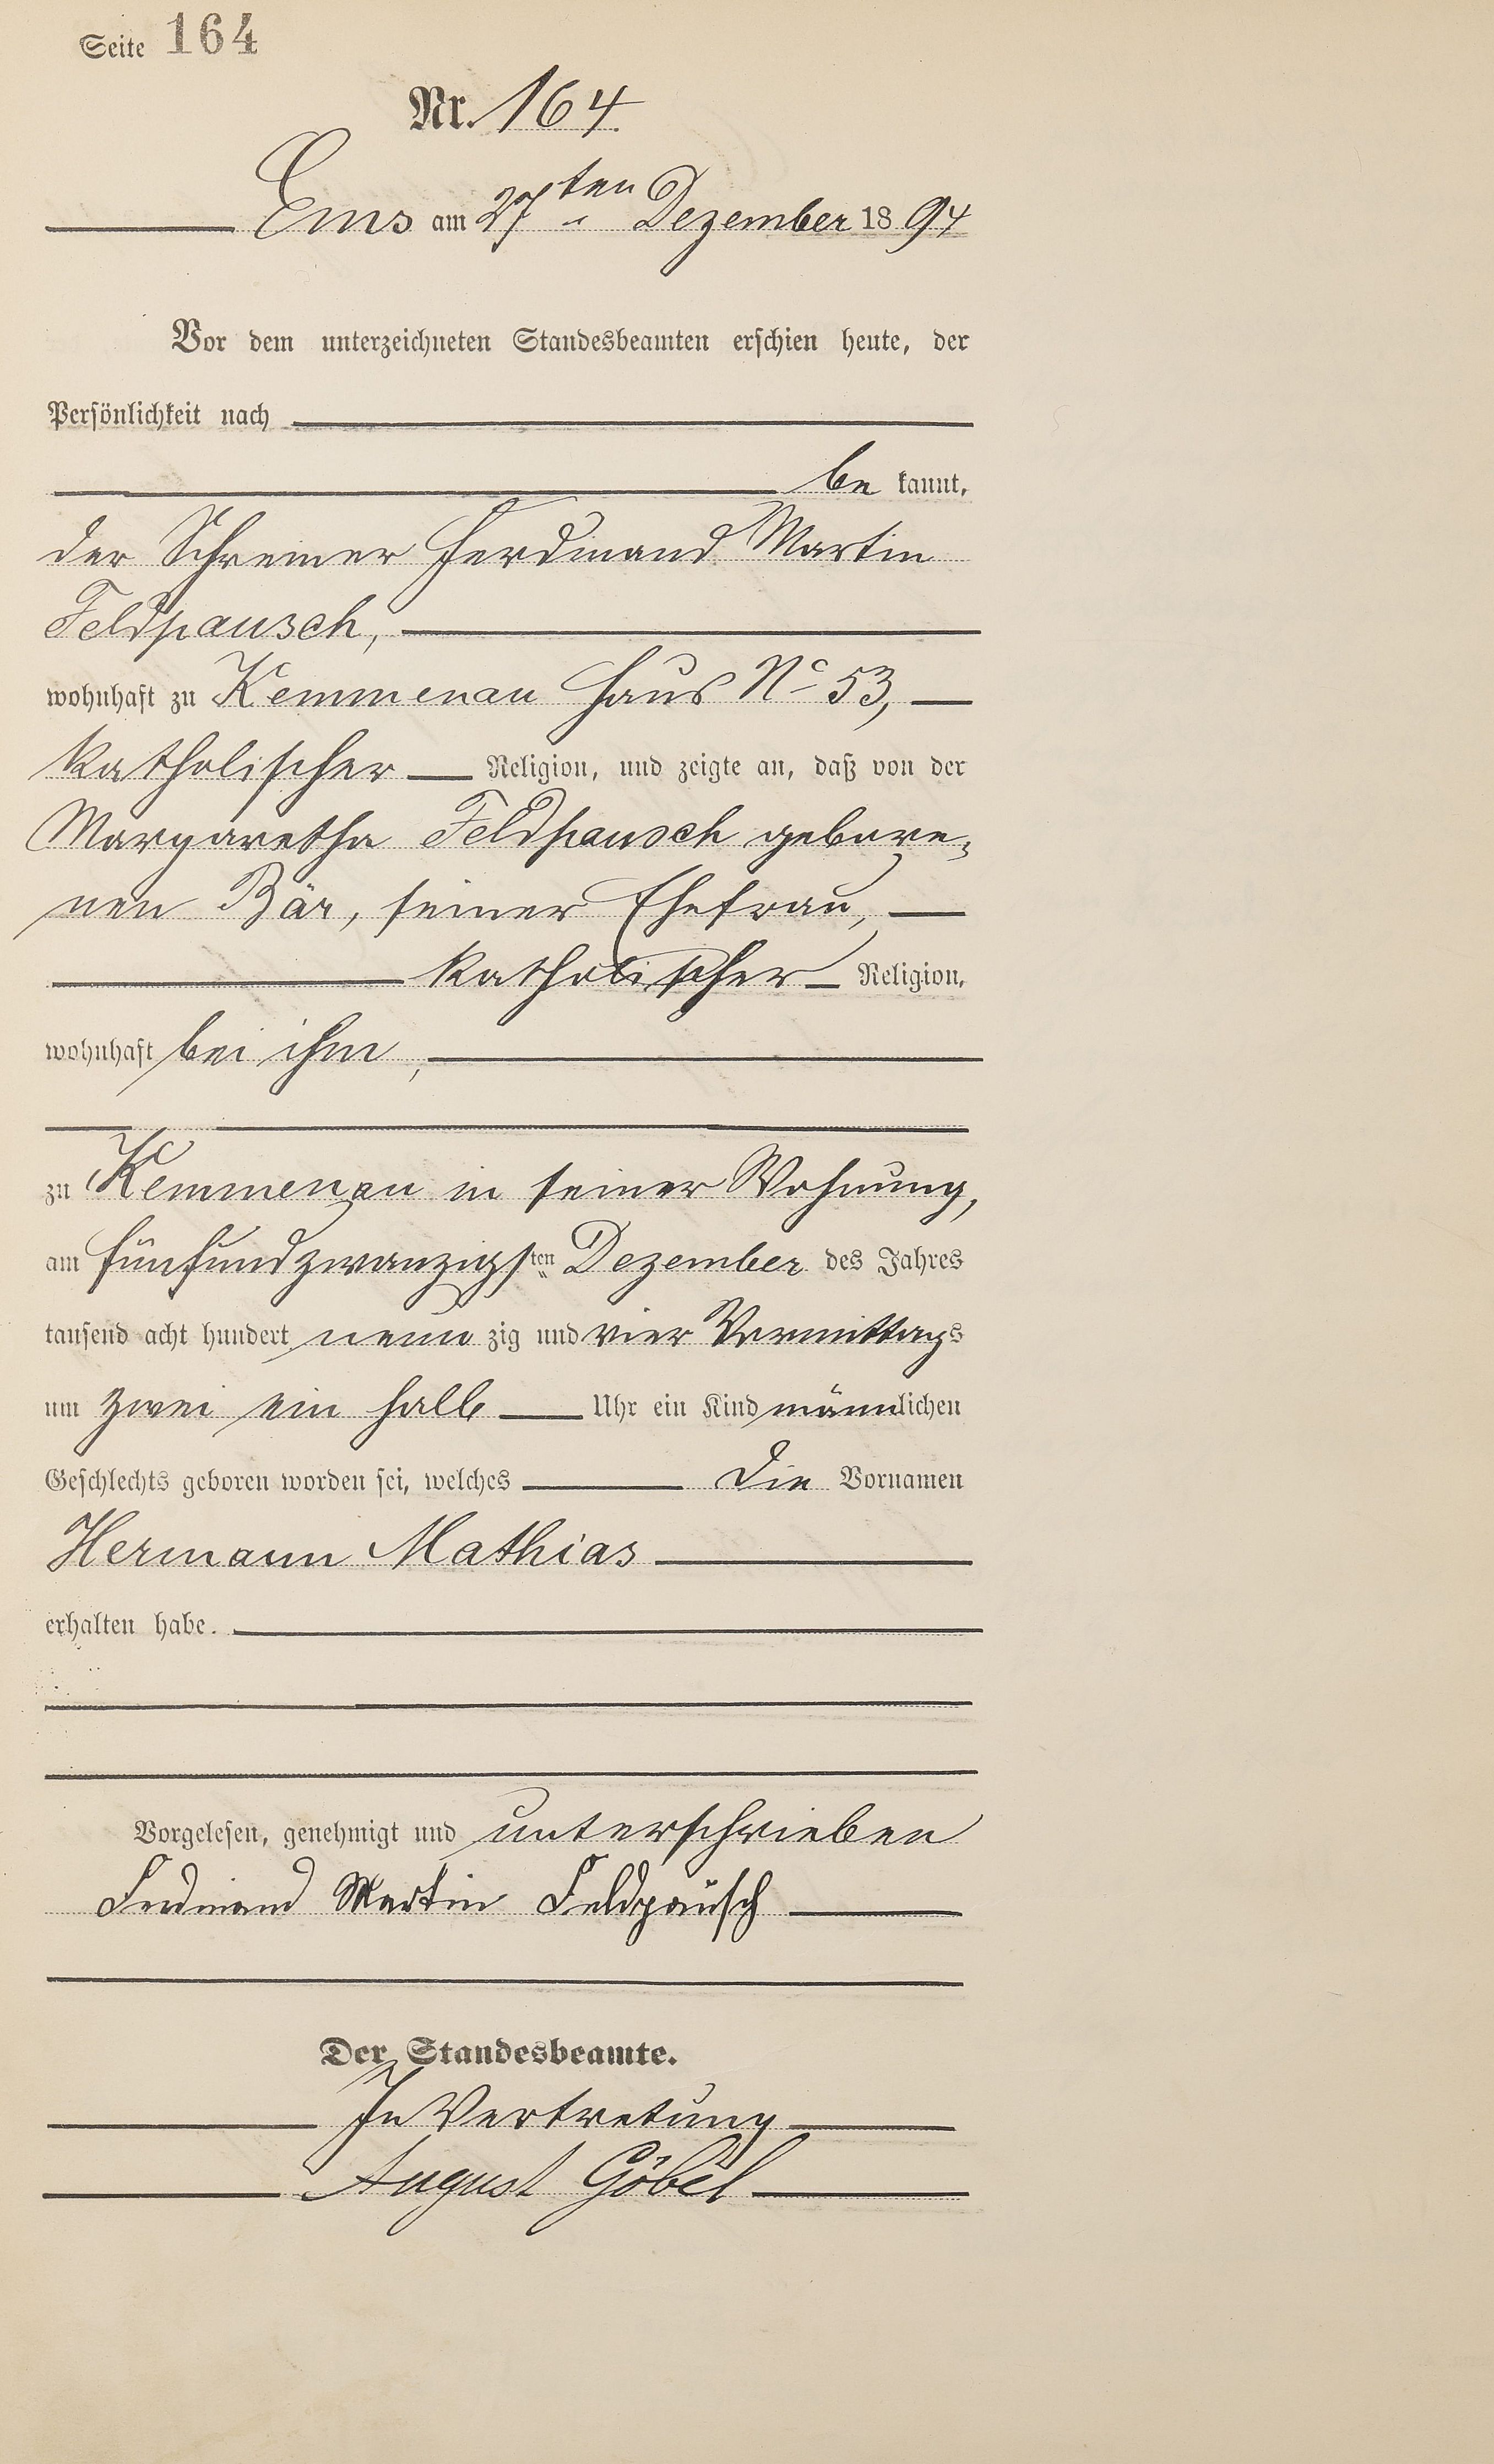 Seite 164
Nr. 164.
Ems am 27ten Dezember 1894
Vor dem unterzeichneten Standesbeamten erschien heute, der
Persönlichkeit nach
be kannt,
der Schreiner Ferdinand Martin
Feldpausch,
wohnhaft zu Kemmenau Haus No 53,
katholischer Religion, und zeigte an, daß von der
Margaretha Feldpausch gebore-
nen Bär, seiner Ehefrau,
katholischer Religion,
wohnhaft bei ihm,
zu Kemmenau in seiner Wohnung,
am fünfundzwanzigsten Dezember des Jahres
tausend acht hundert neun zig und vier Vormittags
um zwei ein halb Uhr ein Kind männlichen
Geschlechts geboren worden sei, welches die Vornamen
Hermann Mathias
erhalten habe.
Vorgelesen, genehmigt und unterschrieben
Ferdinand Martin Feldpausch
Der Standesbeamte.
In Vertretung
August Göbel